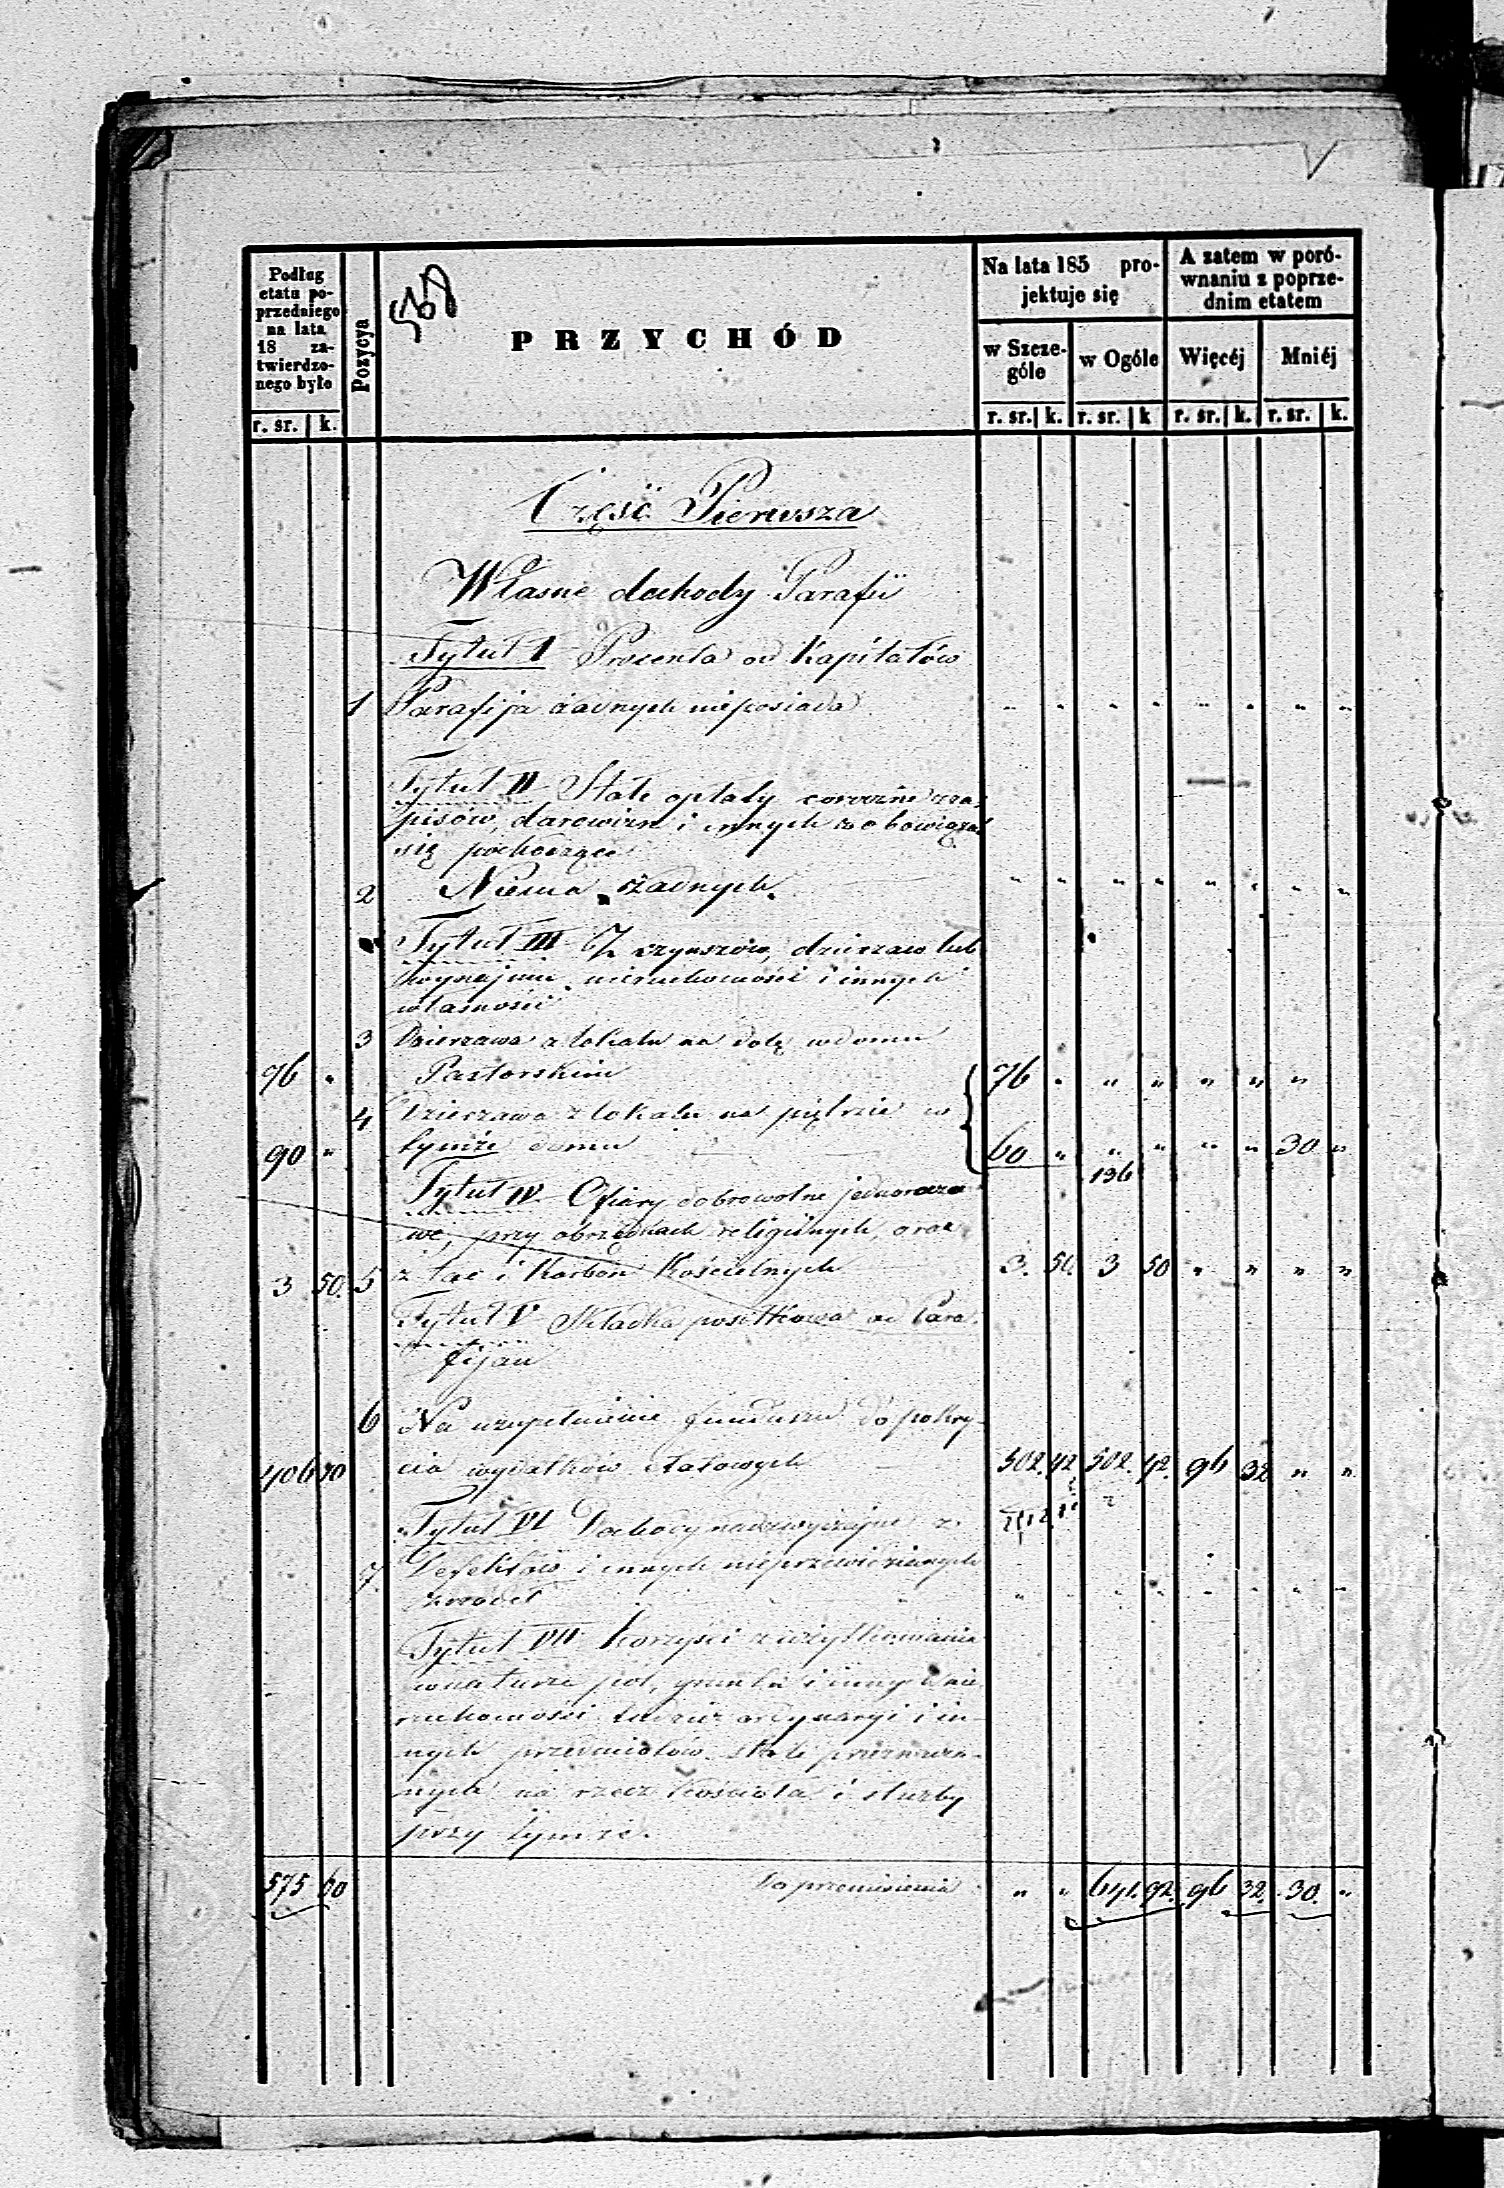 Podług
etatu po-
przedniego
na lata
18 za-
twierdzo-
nego było
r. sr. k.
Pozycya
PRZYCHÓD
Na lata 185 pro-
jektuje się
w Szcze-
góle
w Ogóle
r. sr. k. r. sr. k
A zatem w poró-
wnaniu z poprze-
dnim etatem
Więcéj Mniéj
r. sr. k. r. sr. k.
Część Pierwsza
Własne dochody Parafii
Tytuł I Procenta od Kapitałów
1 Parafija żadnych nieposiada " " " " " " " "
Tytuł II Stałe opłaty coroczne z za-
pisów, darowizn i innych zobowiązań
się pochodzące
2 Niema żadnych. " " " " " " " "
Tytuł III Z czynszów, dzierżaw lub
wynajmu nieruchomości i innych
własności
3 Dzierżawa z lokalu na dole w domu
96 " Pastorskim 76 " " " " " "
4 Dzierżawa z lokalu na piętrze w
90 " tymże domu 60 " " " " " 30 "
136
Tytuł IV Ofiary dobrowolne jednorazo
we, przy obrzędach religijnych, oraz
3 50. 5 z tac i Karbon Kościelnych 3. 50. 3 50 " " " "
Tytuł V Składka posiłkowa od Para-
fijan
6 Na uzupełnienie funduszu do pokry-
406 10 cia wydatków etatowych 502. 42. 502. 42. 96 32 " "
Tytuł VI Dochody nadzwyczajne z
7 Defektów i innych nieprzewidzianych
źródeł " " " " " " " "
Tytuł VII Korzyści z użytkowania
w naturze pól, gruntu i innych nie
ruchomości tudzież ordynaryi i in-
nych przedmiotów stale przeznaczo-
nych na rzecz Kościoła i służby
przy tymże.
575 60 Do przeniesienia " " 641. 92. 96 32. 30. "